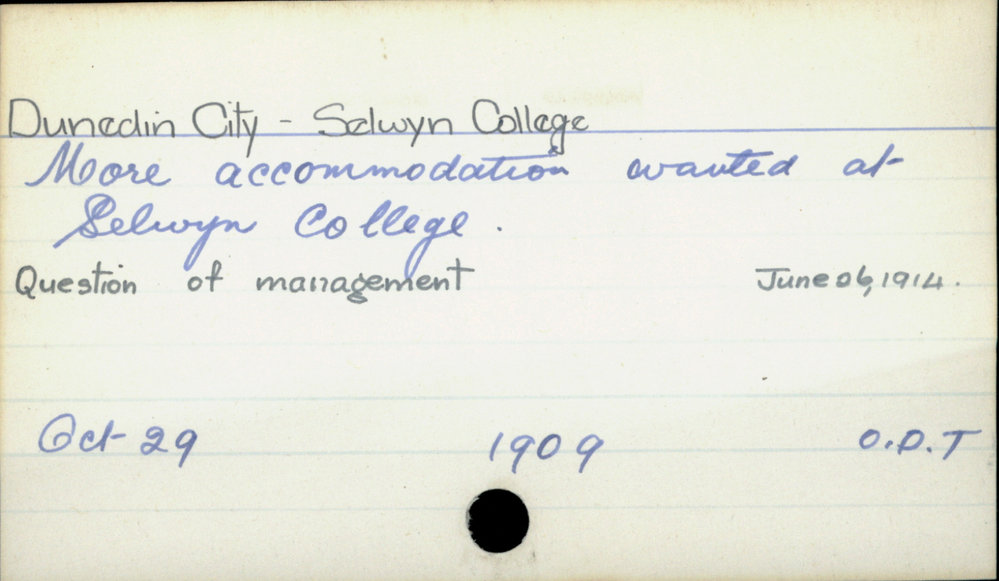 Dunedin City - Selwyn College
More accommodation wanted at
Selwyn College.
Question of management June 06, 1914.
Oct 29 1909 O.D.T